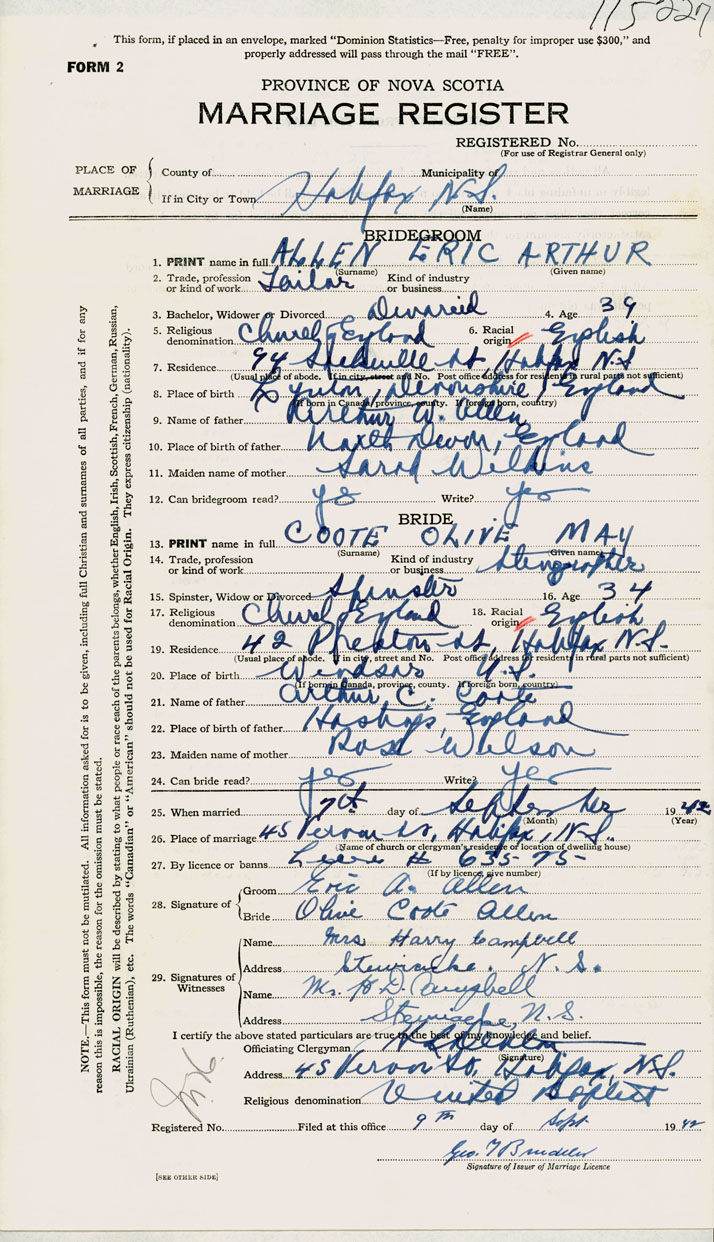 115227
This form, if placed in an envelope, marked "Dominion Statistics—Free, penalty for improper use $300," and
properly addressed will pass through the mail "FREE".
FORM 2
PROVINCE OF NOVA SCOTIA
MARRIAGE REGISTER
REGISTERED No.
(For use of Registrar General only)
PLACE OF MARRIAGE
County of Municipality of
If in City or Town Halifax N.S.
(Name)
BRIDEGROOM
1. PRINT name in full ALLEN ERIC ARTHUR
(Surname) (Given name)
2. Trade, profession or kind of work Tailor Kind of industry or business
3. Bachelor, Widower or Divorced Divorced 4. Age 39
5. Religious denomination Church England 6. Racial origin English
7. Residence 94 St, Halifax N.S
(Usual place of abode. If in city, street and No. Post office address for residents in rural parts not sufficient)
8. Place of birth Devonshire, England
(If born in Canada, province, county. If foreign born, country)
9. Name of father Arthur W. Allen
10. Place of birth of father North Devon, England
11. Maiden name of mother Sarah Wilkins
12. Can bridegroom read? yes Write? yes
BRIDE
13. PRINT name in full COOTE OLIVE MAY
(Surname) (Given name)
14. Trade, profession or kind of work Kind of industry or business Stenographer
15. Spinster, Widow or Divorced Spinster 16. Age 34
17. Religious denomination Church England 18. Racial origin English
19. Residence 42 Preston St, Halifax N.S.
(Usual place of abode. If in city, street and No. Post office address for residents in rural parts not sufficient)
20. Place of birth Windsor N.S.
(If born in Canada, province, county. If foreign born, country)
21. Name of father Arthur C. Coote
22. Place of birth of father Hastings, England
23. Maiden name of mother Rose Wilson
24. Can bride read? yes Write? yes
25. When married 7th day of September 1942
(Month) (Year)
26. Place of marriage 45 Vernon St, Halifax, N.S.
(Name of church or clergyman's residence or location of dwelling house)
27. By licence or banns # 635-75-
(If by licence, give number)
28. Signature of
Groom Eric A. Allen
Bride Olive Coote Allen
29. Signatures of Witnesses
Name Mrs Harry Campbell
Address Stewiacke. N.S.
Name Mr. H.D. Campbell
Address Stewiacke, N.S.
I certify the above stated particulars are true to the best of my knowledge and belief.
Officiating Clergyman
(Signature)
Address 45 Vernon St, Halifax, N.S.
Religious denomination United Baptist
Registered No. Filed at this office 9th day of Sept 1942
Geo.
Signature of Issuer of Marriage Licence
[SEE OTHER SIDE]
NOTE.—This form must not be mutilated. All information asked for is to be given, including full Christian and surnames of all parties, and if for any
reason this is impossible, the reason for the omission must be stated.
RACIAL ORIGIN will be described by stating to what people or race each of the parents belongs, whether English, Irish, Scottish, French, German, Russian,
Ukrainian (Ruthenian), etc. The words "Canadian" or "American" should not be used for Racial Origin. They express citizenship (nationality).